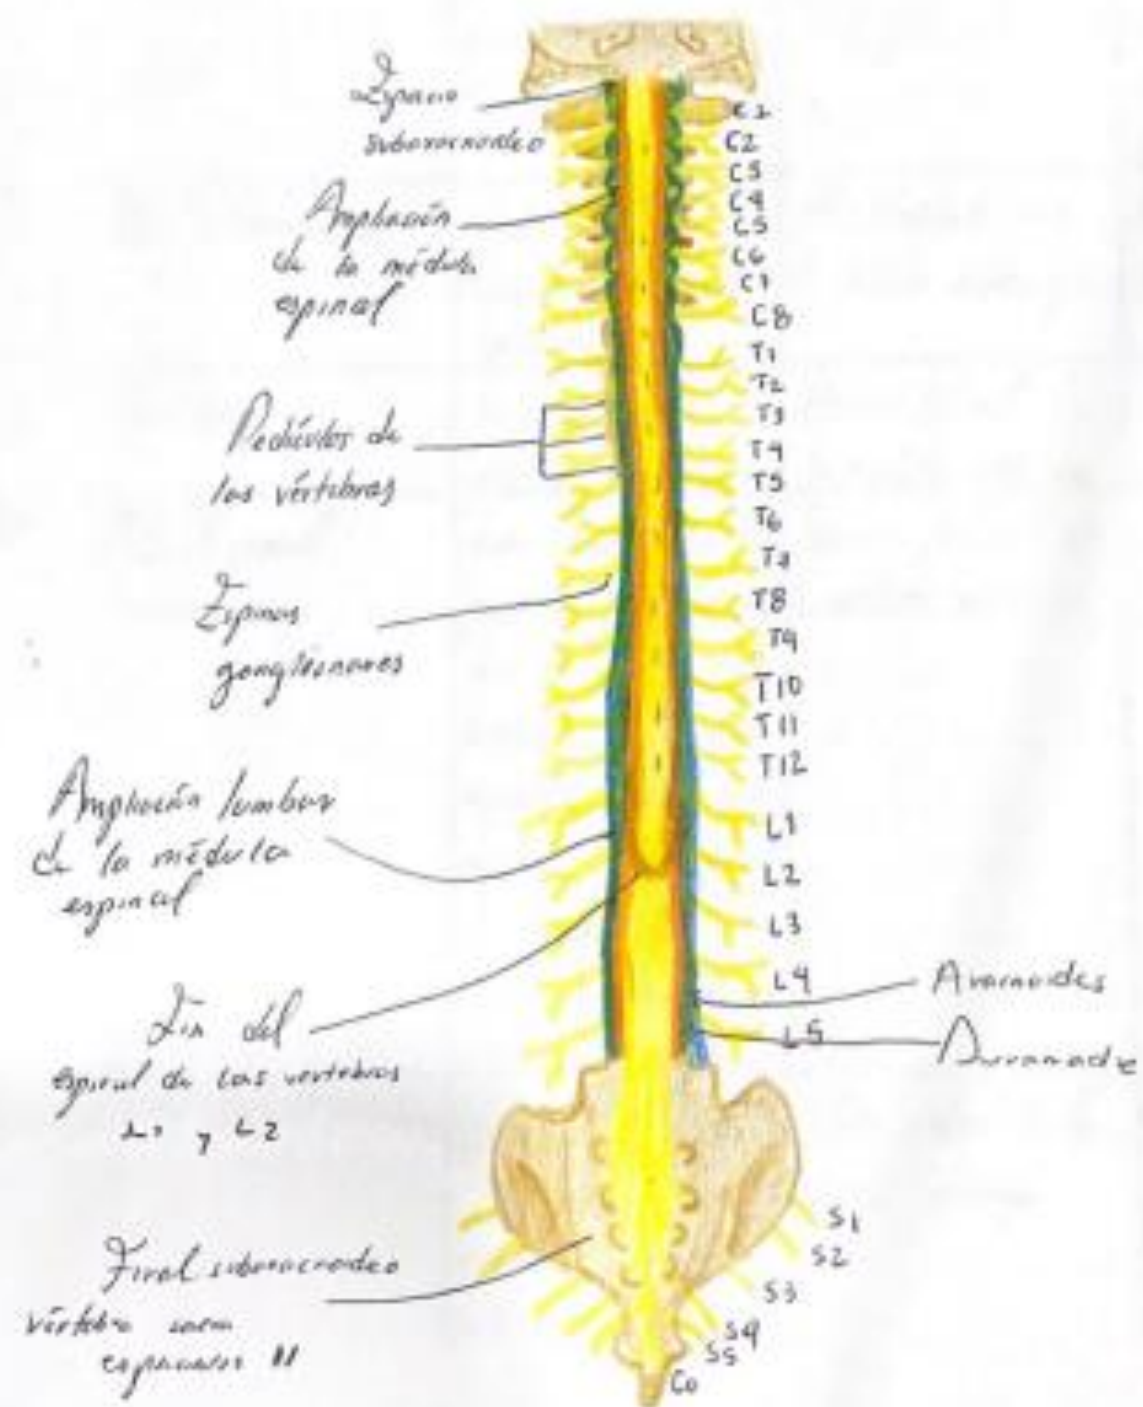 Espacio
subaracnoideo
Ampliación
de la médula
espinal
Pedículos de
las vértebras
Espinas
ganglionares
Ampliación lumbar
de la médula
espinal
Fin del
espinal de las vertebras
y L2
Final subaracnoideo
vértebra
C1
C2
C3
C4
C5
C6
C7
C8
T1
T2
T3
T4
T5
T6
T7
T8
T9
T10
T11
T12
L1
L2
L3
L4
L5
Aracnoides
Duramadre
S1
S2
S3
S4
S5
Co